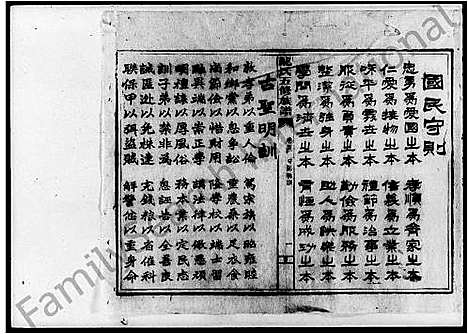 國民守則
忠勇為愛國之本　孝順為齊家之本
仁愛為接物之本　信義為立業之本
和平為處世之本　禮節為治事之本
服從為負責之本　勤儉為服務之本
整潔為強身之本　助人為快樂之本
學問為濟世之本　有恆為成功之本
氏五修族譜
古聖明訓
敦孝弟以重人倫　篤宗族以昭雍睦
和鄉黨以息爭訟　重農桑以足衣食
尚節儉以惜財用　隆學校以端士習
黜異端以崇正學　講法律以儆愚頑
明禮讓以厚風俗　務本業以定民志
訓子弟以禁非為　息誣告以全善良
誡匿逃以免株連　完錢糧以省催科
聯保甲以弭盜賊　解讐忿以重身命
Family
national